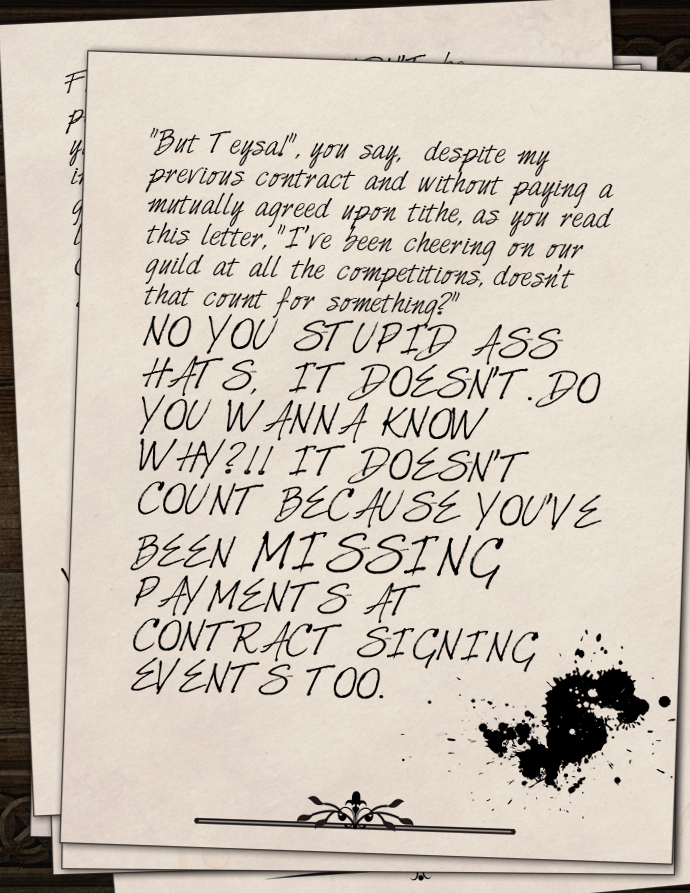 "But Teysa!", you say, despite my
previous contract and without paying a
mutually agreed upon tithe, as you read
this letter, "I've been cheering on our
guild at all the competitions, doesn't
that count for something?"
NO YOU STUPID ASS
HATS, IT DOESN'T. DO
YOU WANNA KNOW
WHY?!! IT DOESN'T
COUNT BECAUSE YOU'VE
BEEN MISSING
PAYMENTS AT
CONTRACT SIGNING
EVENTS TOO.